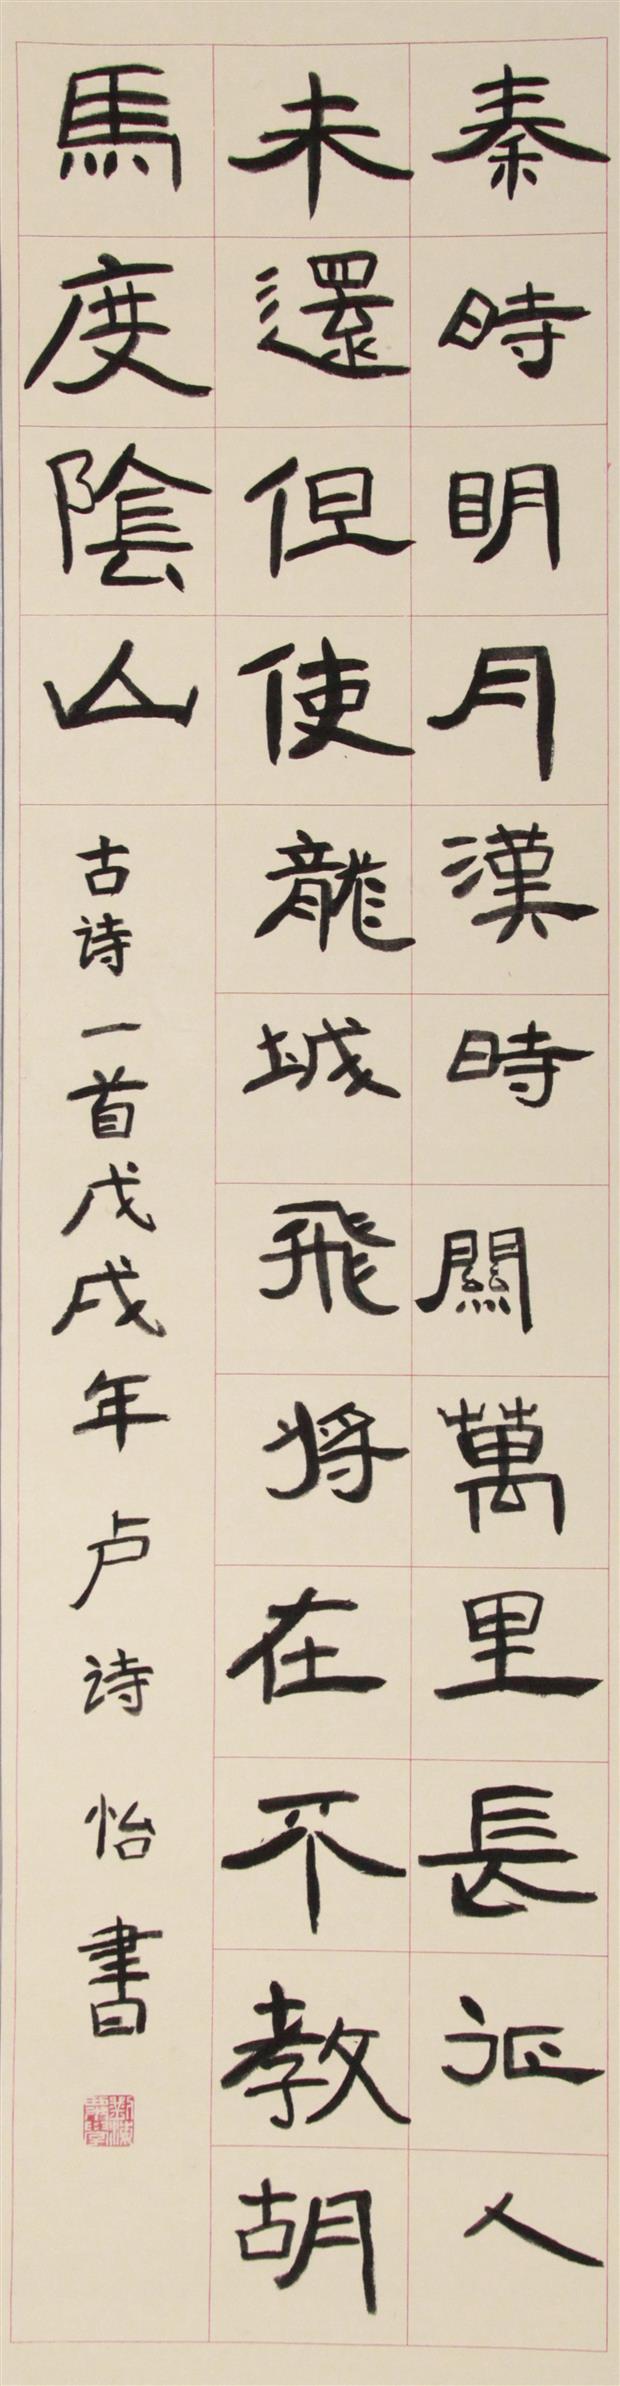 秦時明月漢時關萬里長征人
未還但使龍城飛将在不教胡
馬度陰山
古诗一首戊戌年卢诗怡書